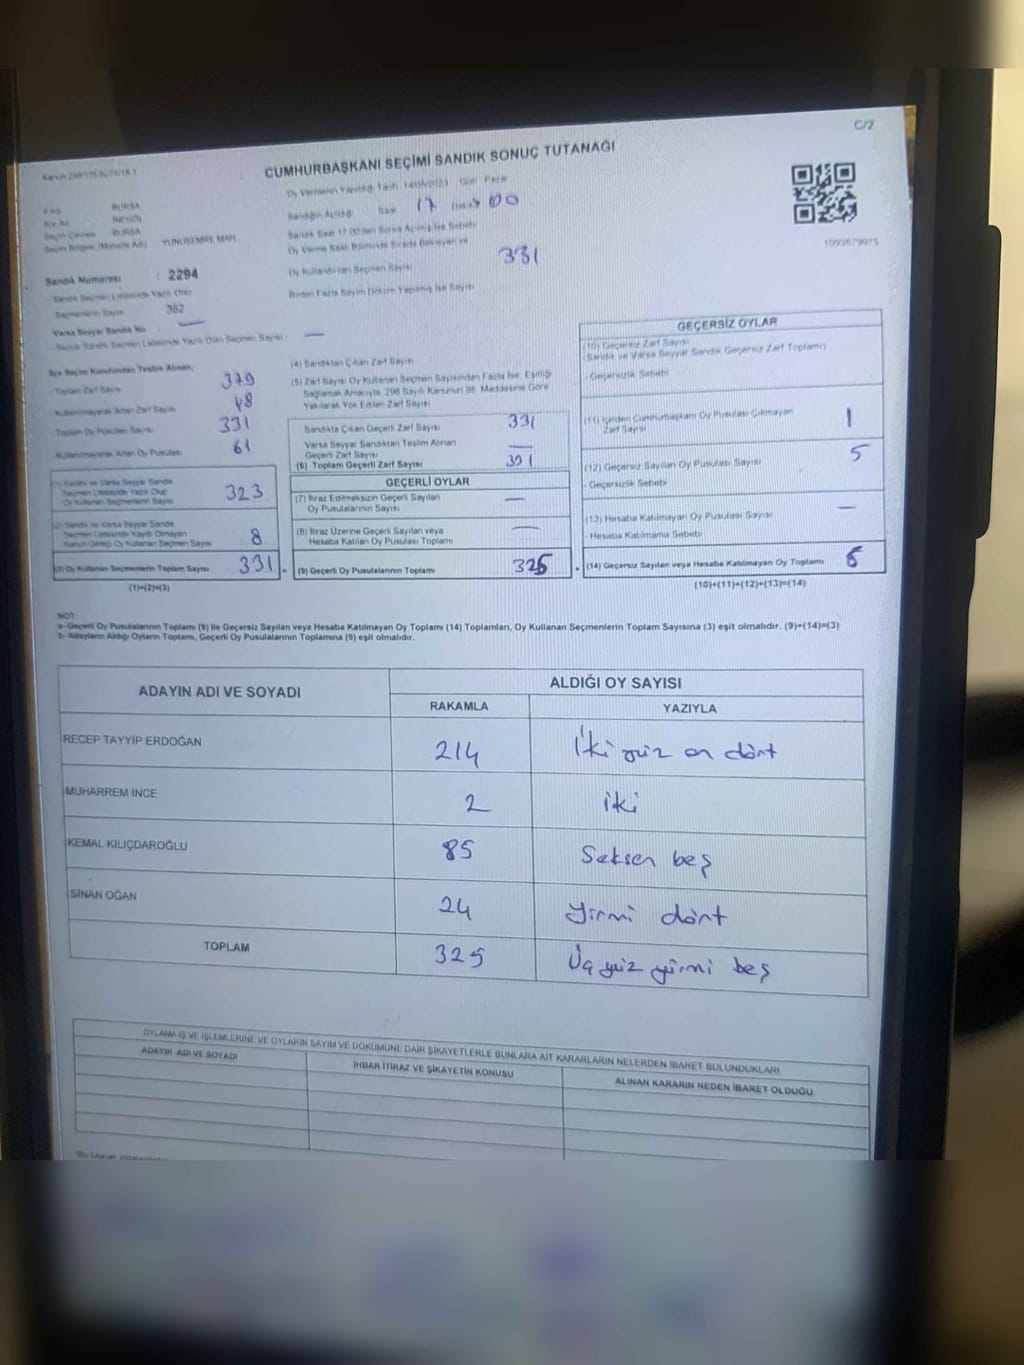 C/2
CUMHURBAŞKANI SEÇİMİ SANDIK SONUÇ TUTANAĞI
Oy Vermenin Yapıldığı Tarih 14/05/2023 Gün Pazar
BURSA
İNEGÖL
BURSA
YUNUSEMRE MAH.
Sandığın Açıldığı Saat 17 00
Sandık Saat 17.00'den Sonra Açılmış İse Sebebi
331
1093579975
Sandık Numarası : 2294
Sandık Seçmen Listesinde Yazılı Olan
Seçmenlerin Sayısı 362
Varsa Seyyar Sandık No —
- Seyyar Sandık Seçmen Listesinde Yazılı Olan Seçmen Sayısı - —
İlçe Seçim Kurulundan Teslim Alınan;
- Toplam Zarf Sayısı 379
- Kullanılmayarak Artan Zarf Sayısı 48
- Toplam Oy Pusulası Sayısı 331
- Kullanılmayarak Artan Oy Pusulası 61
(1) Sandık ve Varsa Seyyar Sandık
Seçmen Listesinde Yazılı Olup
Oy Kullanan Seçmenlerin Sayısı 323
(2) Sandık ve Varsa Seyyar Sandık
Seçmen Listesinde Kayıtlı Olmayan
Kanun Gereği Oy Kullanan Seçmen Sayısı 8
(3) Oy Kullanan Seçmenlerin Toplam Sayısı 331
(1)+(2)=(3)
(4) Sandıktan Çıkan Zarf Sayısı
(5) Zarf Sayısı Oy Kullanan Seçmen Sayısından Fazla İse, Eşitliği
Sağlamak Amacıyla, 298 Sayılı Kanunun 98. Maddesine Göre
Yakılarak Yok Edilen Zarf Sayısı
Sandıkta Çıkan Geçerli Zarf Sayısı 331
Varsa Seyyar Sandıktan Teslim Alınan
Geçerli Zarf Sayısı —
(6) Toplam Geçerli Zarf Sayısı 331
GEÇERLİ OYLAR
(7) İtiraz Edilmeksizin Geçerli Sayılan
Oy Pusulalarının Sayısı —
(8) İtiraz Üzerine Geçerli Sayılan veya
Hesaba Katılan Oy Pusulası Toplamı —
(9) Geçerli Oy Pusulalarının Toplamı 325
GEÇERSİZ OYLAR
(10) Geçersiz Zarf Sayısı
(Sandık ve Varsa Seyyar Sandık Geçersiz Zarf Toplamı)
- Geçersizlik Sebebi
(11) İçinden Cumhurbaşkanı Oy Pusulası Çıkmayan
Zarf Sayısı 1
(12) Geçersiz Sayılan Oy Pusulası Sayısı 5
- Geçersizlik Sebebi
(13) Hesaba Katılmayan Oy Pusulası Sayısı —
- Hesaba Katılmama Sebebi
(14) Geçersiz Sayılan veya Hesaba Katılmayan Oy Toplamı 6
(10)+(11)+(12)+(13)=(14)
NOT:
a- Geçerli Oy Pusulalarının Toplamı (9) ile Geçersiz Sayılan veya Hesaba Katılmayan Oy Toplamı (14) Toplamları, Oy Kullanan Seçmenlerin Toplam Sayısına (3) eşit olmalıdır. (9)+(14)=(3)
b- Adayların Aldığı Oyların Toplamı, Geçerli Oy Pusulalarının Toplamına (9) eşit olmalıdır.
ADAYIN ADI VE SOYADI
ALDIĞI OY SAYISI
RAKAMLA YAZIYLA
RECEP TAYYİP ERDOĞAN 214 İki yüz on dört
MUHARREM İNCE 2 iki
KEMAL KILIÇDAROĞLU 85 Seksen beş
SİNAN OĞAN 24 Yirmi dört
TOPLAM 325 Üç yüz yirmi beş
OYLAMA İŞ VE İŞLEMLERİNE VE OYLARIN SAYIM VE DÖKÜMÜNE DAİR ŞİKAYETLERLE BUNLARA AİT KARARLARIN NELERDEN İBARET BULUNDUKLARI
ADAYIN ADI VE SOYADI
İHBAR İTİRAZ VE ŞİKAYETİN KONUSU
ALINAN KARARIN NEDEN İBARET OLDUĞU